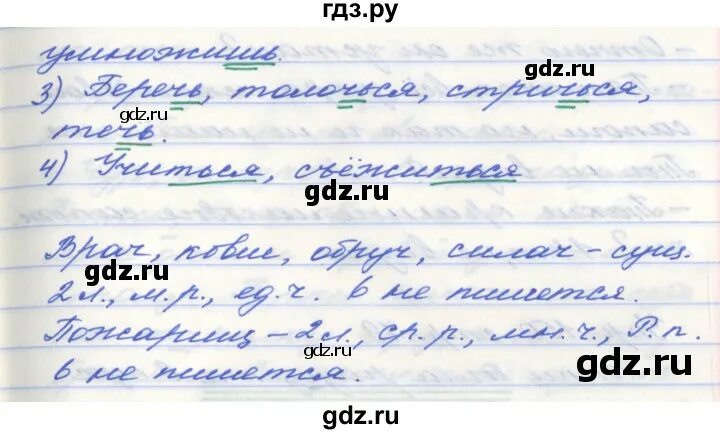 гдз.ру
умножишь.
gdz.ru
3) Беречь, толочься, стричься,
gdz.ru
течь.
gdz.ru
4) Учиться, съёжиться
gdz.ru
Врач, ковш, обруч, силач – сущ.
gdz.ru
2 л., м. р., ед. ч. ь не пишется.
Пожарищ – 2 л., ср. р., мн. ч., Р. п.
gdz.ru
gdz.ru
ь не пишется.
gdz.ru